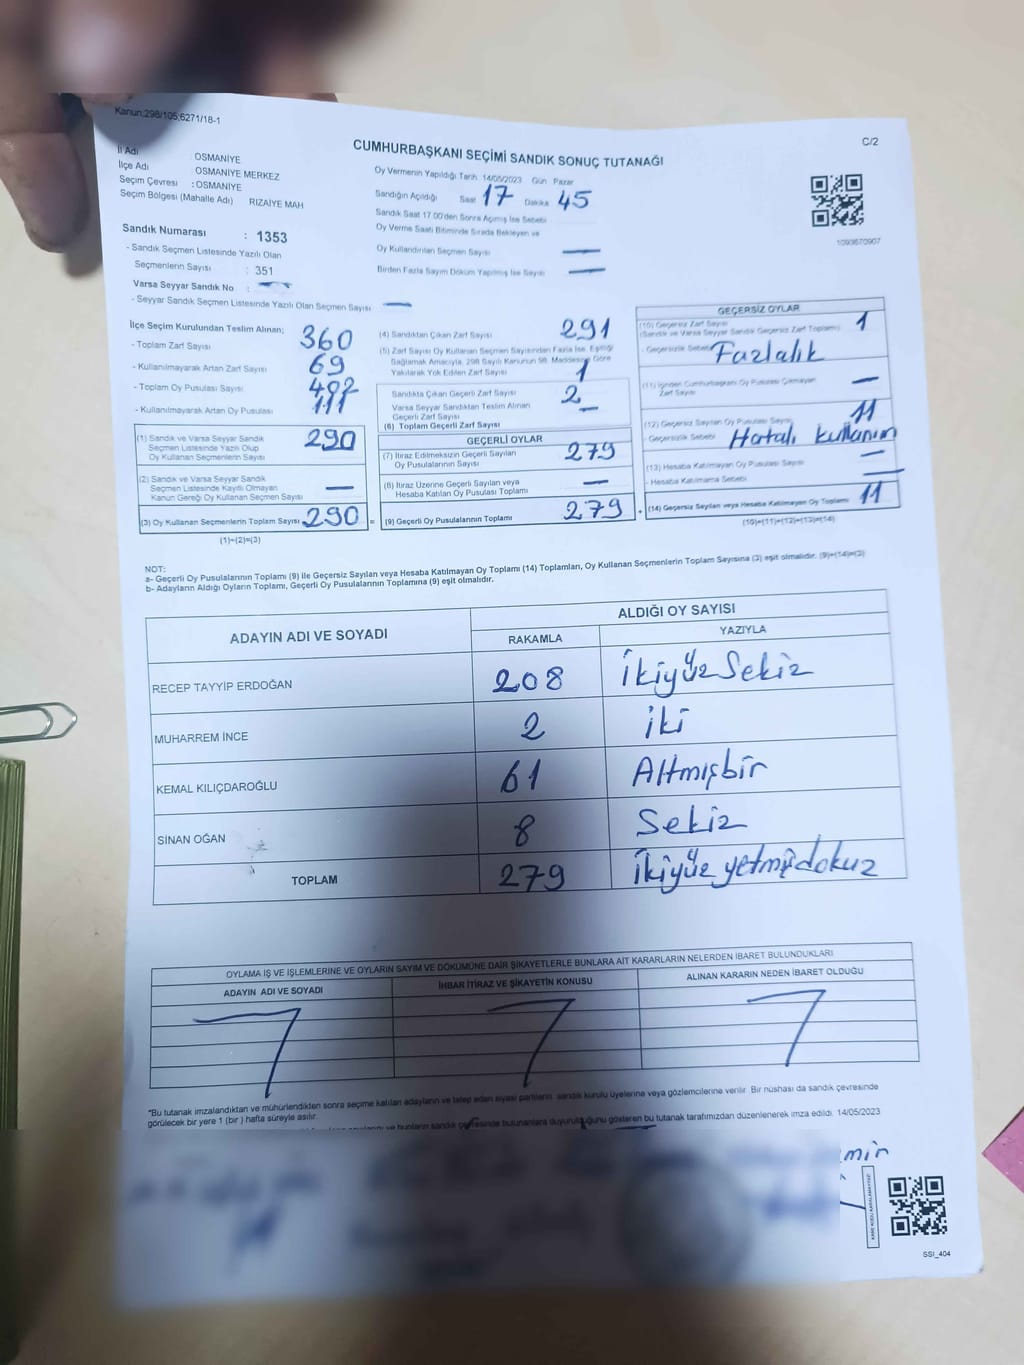 Kanun:298/105;6271/18-1
C/2
CUMHURBAŞKANI SEÇİMİ SANDIK SONUÇ TUTANAĞI
İl Adı OSMANİYE
İlçe Adı OSMANİYE MERKEZ
Seçim Çevresi : OSMANİYE
Seçim Bölgesi (Mahalle Adı) RIZAİYE MAH
Oy Vermenin Yapıldığı Tarih 14/05/2023 Gün Pazar
Sandığın Açıldığı Saat 17 Dakika 45
Sandık Saat 17.00'den Sonra Açılmış İse Sebebi
Oy Verme Saati Bitiminde Sırada Bekleyen ve
Oy Kullandırılan Seçmen Sayısı —
Birden Fazla Sayım Döküm Yapılmış İse Sayısı —
1093670907
Sandık Numarası : 1353
- Sandık Seçmen Listesinde Yazılı Olan
Seçmenlerin Sayısı : 351
Varsa Seyyar Sandık No : —
- Seyyar Sandık Seçmen Listesinde Yazılı Olan Seçmen Sayısı —
İlçe Seçim Kurulundan Teslim Alınan;
- Toplam Zarf Sayısı 360
- Kullanılmayarak Artan Zarf Sayısı 69
- Toplam Oy Pusulası Sayısı
- Kullanılmayarak Artan Oy Pusulası 111
(1) Sandık ve Varsa Seyyar Sandık
Seçmen Listesinde Yazılı Olup
Oy Kullanan Seçmenlerin Sayısı 290
(2) Sandık ve Varsa Seyyar Sandık
Seçmen Listesinde Kayıtlı Olmayan
Kanun Gereği Oy Kullanan Seçmen Sayısı —
(3) Oy Kullanan Seçmenlerin Toplam Sayısı 290 =
(1)+(2)=(3)
(4) Sandıktan Çıkan Zarf Sayısı 291
(5) Zarf Sayısı Oy Kullanan Seçmen Sayısından Fazla İse, Eşitliği
Sağlamak Amacıyla, 298 Sayılı Kanunun 98. Maddesine Göre
Yakılarak Yok Edilen Zarf Sayısı 1
Sandıkta Çıkan Geçerli Zarf Sayısı 2
Varsa Seyyar Sandıktan Teslim Alınan
Geçerli Zarf Sayısı —
(6) Toplam Geçerli Zarf Sayısı
GEÇERLİ OYLAR
(7) İtiraz Edilmeksizin Geçerli Sayılan
Oy Pusulalarının Sayısı 279
(8) İtiraz Üzerine Geçerli Sayılan veya
Hesaba Katılan Oy Pusulası Toplamı —
(9) Geçerli Oy Pusulalarının Toplamı 279 +
GEÇERSİZ OYLAR
(10) Geçersiz Zarf Sayısı
(Sandık ve Varsa Seyyar Sandık Geçersiz Zarf Toplamı) 1
- Geçersizlik Sebebi Fazlalık
(11) İçinden Cumhurbaşkanı Oy Pusulası Çıkmayan
Zarf Sayısı —
(12) Geçersiz Sayılan Oy Pusulası Sayısı 11
- Geçersizlik Sebebi Hatalı kullanım
(13) Hesaba Katılmayan Oy Pusulası Sayısı —
- Hesaba Katılmama Sebebi —
(14) Geçersiz Sayılan veya Hesaba Katılmayan Oy Toplamı 11
(10)+(11)+(12)+(13)=(14)
NOT:
a- Geçerli Oy Pusulalarının Toplamı (9) ile Geçersiz Sayılan veya Hesaba Katılmayan Oy Toplamı (14) Toplamları, Oy Kullanan Seçmenlerin Toplam Sayısına (3) eşit olmalıdır. (9)+(14)=(3)
b- Adayların Aldığı Oyların Toplamı, Geçerli Oy Pusulalarının Toplamına (9) eşit olmalıdır.
ADAYIN ADI VE SOYADI
ALDIĞI OY SAYISI
RAKAMLA YAZIYLA
RECEP TAYYİP ERDOĞAN 208 İkiyüz Sekiz
MUHARREM İNCE 2 iki
KEMAL KILIÇDAROĞLU 61 Altmışbir
SİNAN OĞAN 8 Sekiz
TOPLAM 279 İkiyüz yetmişdokuz
OYLAMA İŞ VE İŞLEMLERİNE VE OYLARIN SAYIM VE DÖKÜMÜNE DAİR ŞİKAYETLERLE BUNLARA AİT KARARLARIN NELERDEN İBARET BULUNDUKLARI
ADAYIN ADI VE SOYADI İHBAR İTİRAZ VE ŞİKAYETİN KONUSU ALINAN KARARIN NEDEN İBARET OLDUĞU
*Bu tutanak imzalandıktan ve mühürlendikten sonra seçime katılan adayların ve talep eden siyasi partilerin sandık kurulu üyelerine veya gözlemcilerine verilir. Bir nüshası da sandık çevresinde
görülecek bir yere 1 (bir) hafta süreyle asılır.
ve bunların sandık çevresinde bulunanlara duyurulduğunu gösteren bu tutanak tarafımızdan düzenlenerek imza edildi. 14/05/2023
SSI_404